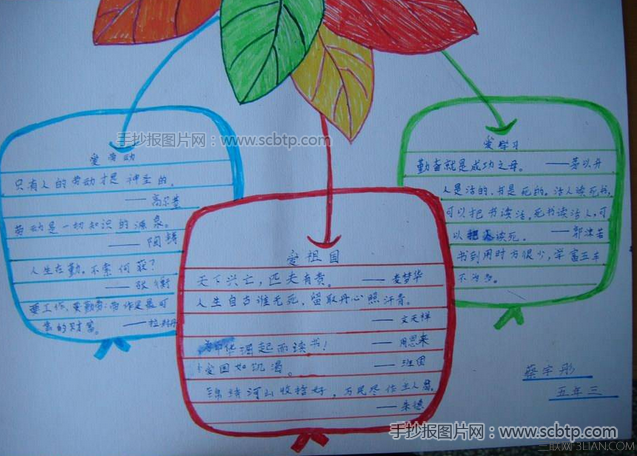 手抄报图片网: www.scbtp.com
爱劳动
只有人的劳动才是神圣的。
——高尔基
劳动是一切知识的源泉。
——陶铸
人生在勤,不索何获?
——张衡
要工作,要勤劳:劳作是最可
靠的财富。
爱祖国
天下兴亡,匹夫有责。
人生自古谁无死,留取丹心照汗青。
——文天祥
为中华崛起而读书!
——周恩来
爱国如饥渴。
——班固
锦绣河山收拾好,万民尽作主人翁。
——朱德
爱学习
勤奋就是成功之母。
——茅以升
人是活的,书是死的。活人读死书,
可以把书读活。死书读活人,可
以把人读死。
——郭沫若
书到用时方恨少,学富五车
不为多。
蔡宇彤
五年三
手抄报图片网: www.scbtp.com